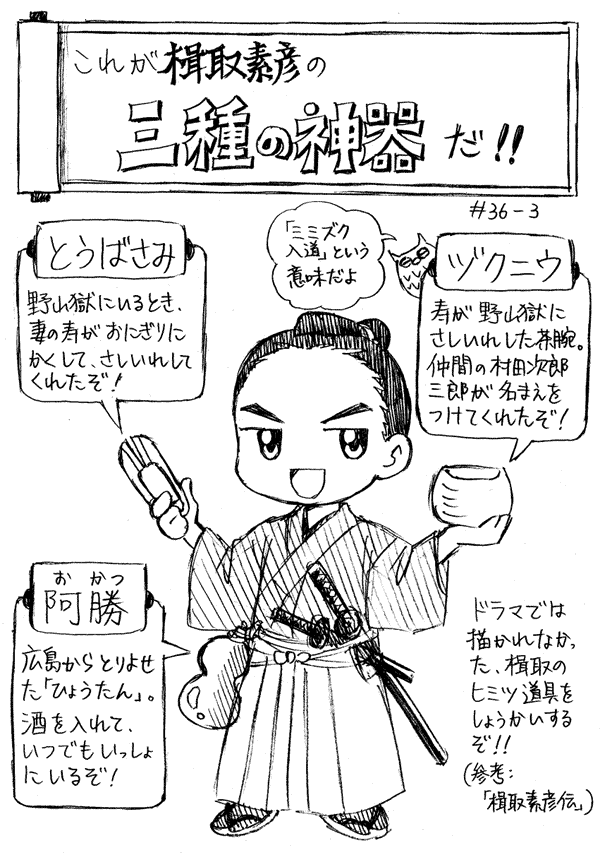 これが楫取素彦の
三種の神器だ!!
#36-3
とうばさみ
野山獄にいるとき、
妻の寿がおにぎりに
かくして、さしいれして
くれたぞ!
「ミミズク
入道」という
意味だよ
ヅクニウ
寿が野山獄に
さしいれした茶腕。
仲間の村田次郎
三郎が名まえを
つけてくれたぞ!
おかつ
阿勝
広島からとりよせ
た「ひょうたん」。
酒を入れて、
いつでもいっしょ
にいるぞ!
ドラマでは
描かれなかっ
た、楫取の
ヒミツ道具を
しょうかいする
ぞ!!
(参考:
「楫取素彦伝」)